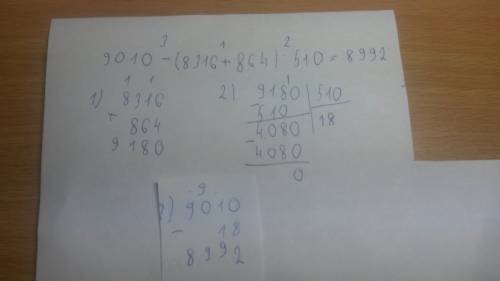 3 1 2
9010 - (8316 + 864) : 510 = 8992
1) 8316
+ 864
9180
2) 9180 | 510
- 510 | 18
4080
- 4080
0
3) 9010
- 18
8992